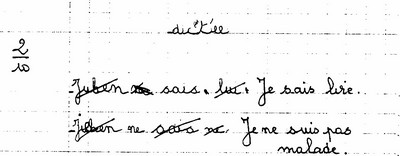 dictée
2/10
- Julien sais. lui. Je sais lire.
- Julien ne sais Je ne suis pas
malade.